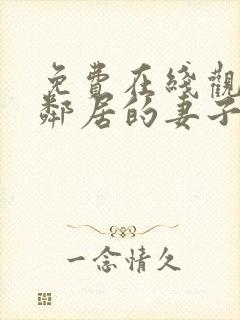 免費在綫觀
鄰居的妻子
一念情久